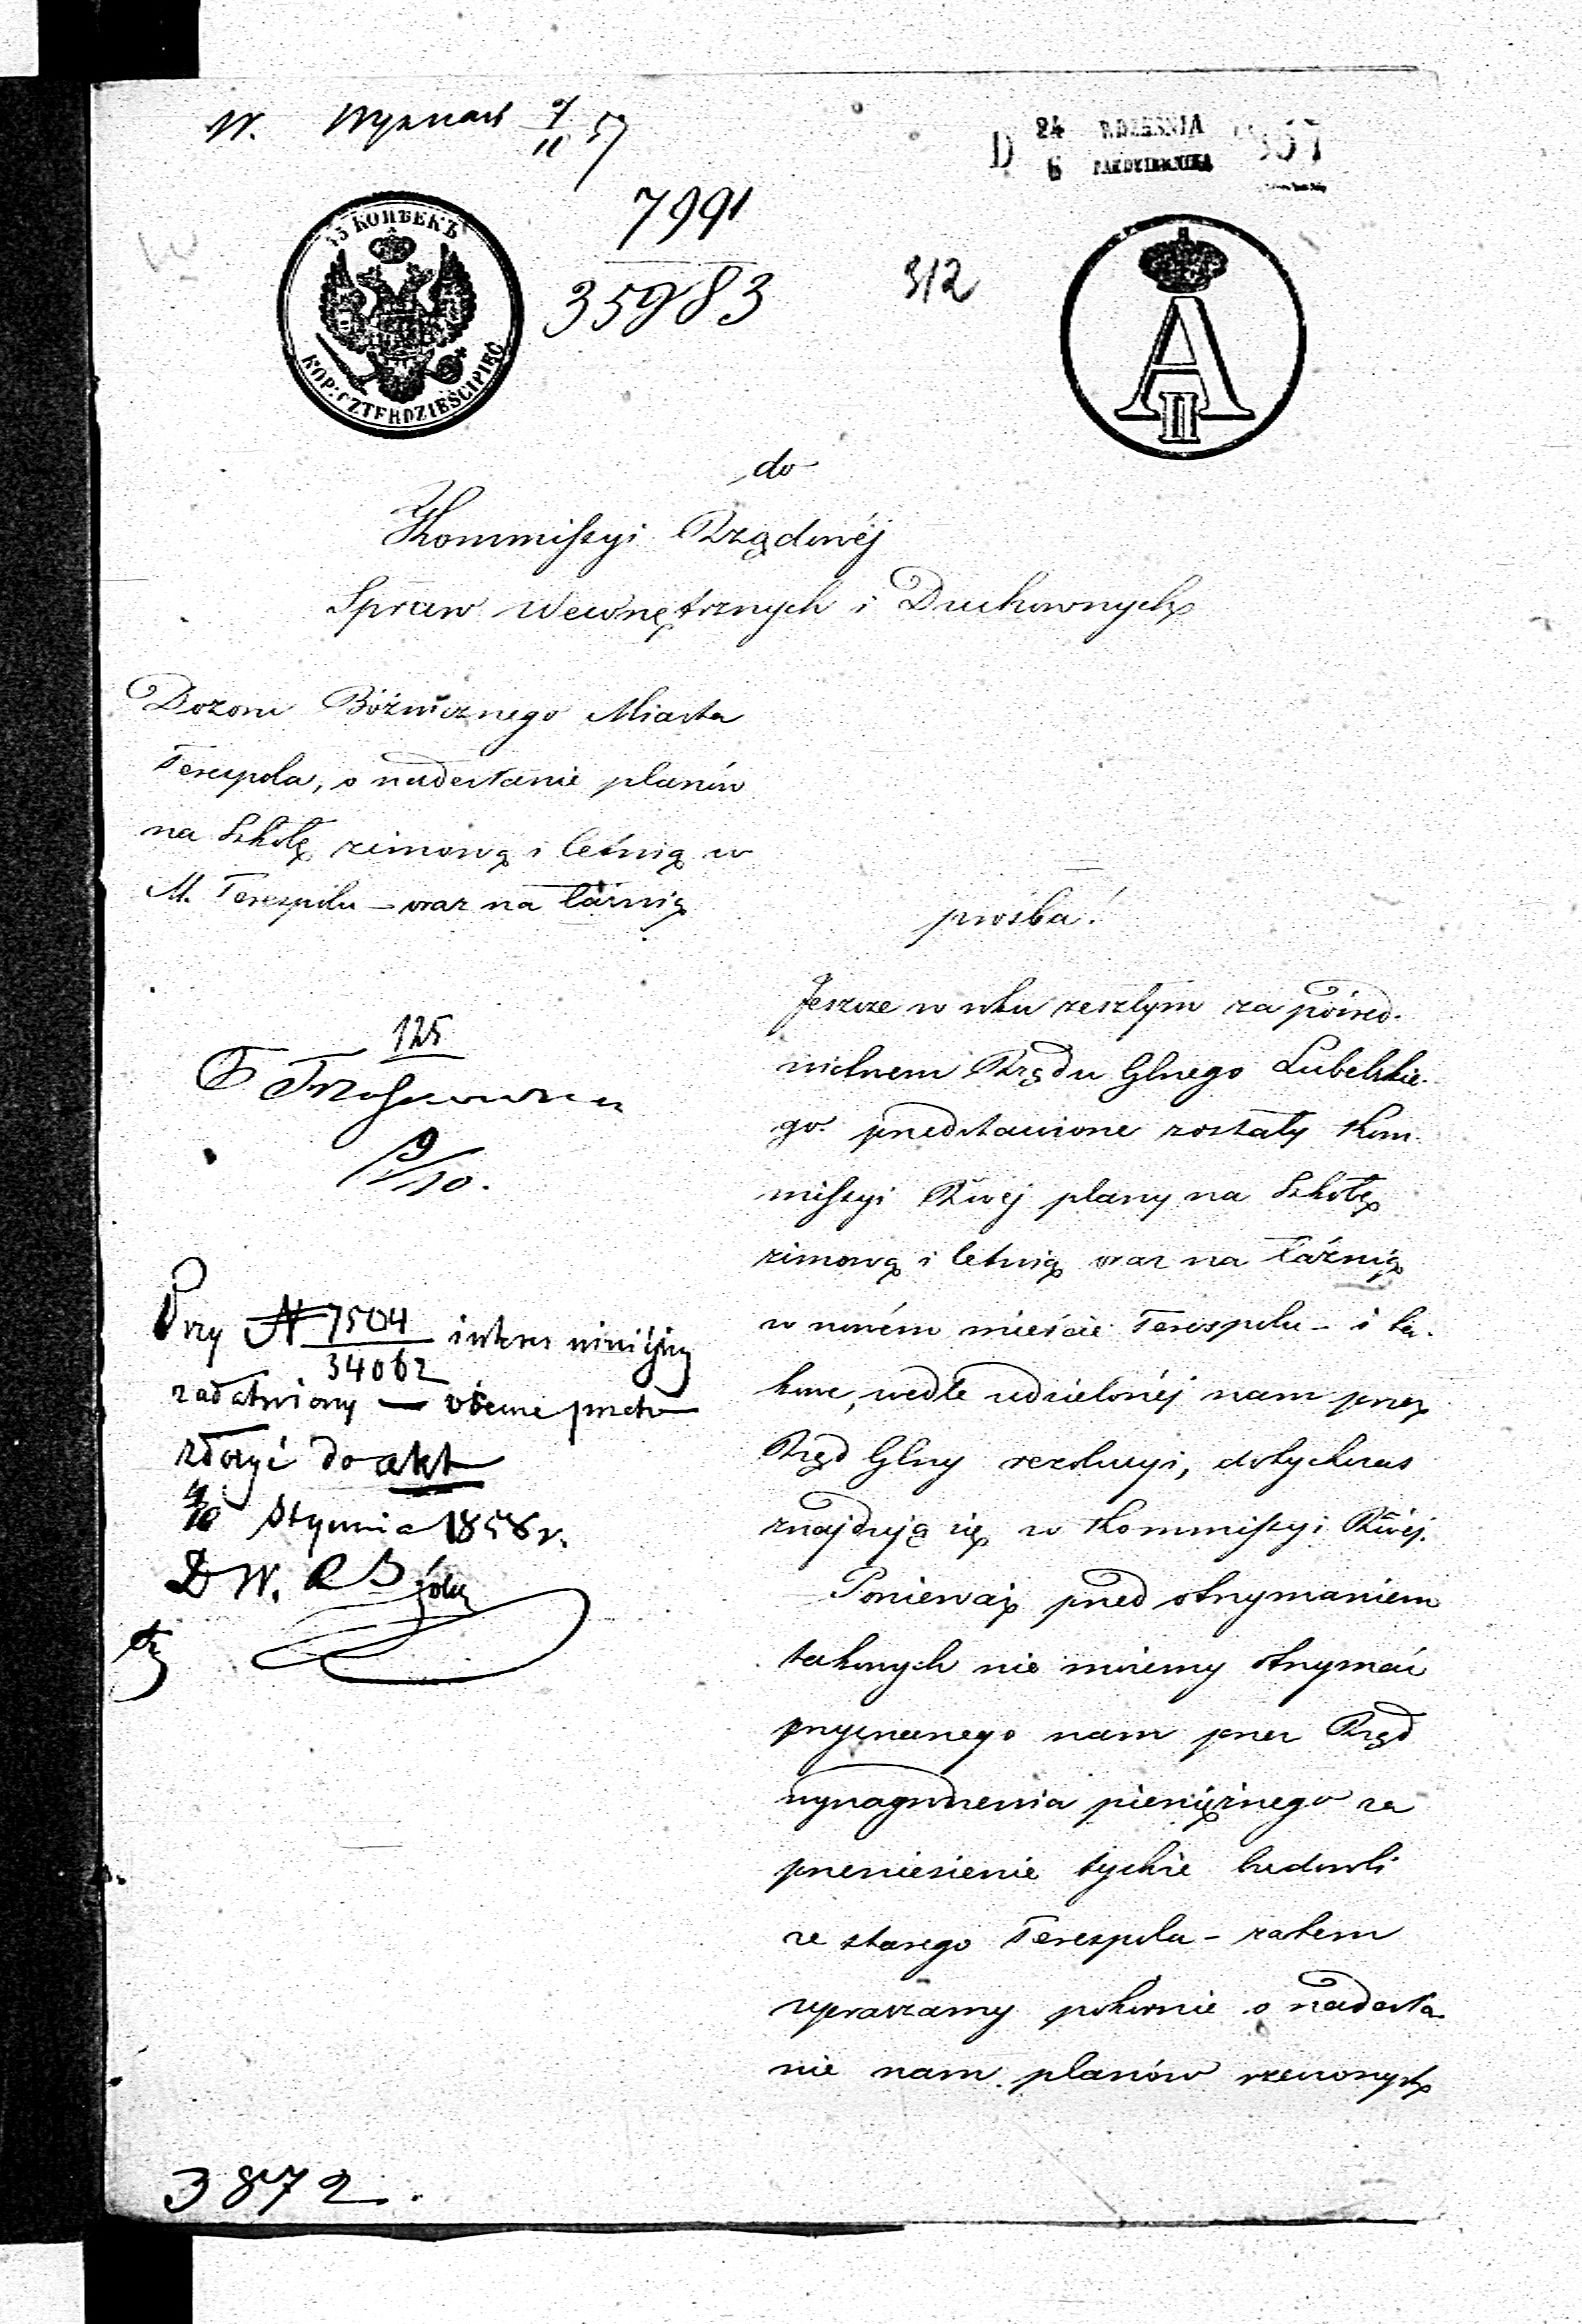 W. Wyznań 9/11 57
D. 24 WRZEŚNIA 6 PAŹDZIERNIKA 1857
7991
35983
312
45 КОПѢЕКЪ
KOP: CZTERDZIEŚCIPIĘĆ
A II
do
Kommissyi Rządowéj
Spraw Wewnętrznych i Duchownych
Dozoru Bóżnicznego Miasta
Terespola, o nadesłanie planów
na Szkołę zimową i letnią w
M. Terespolu – oraz na łaźnią
prośba!
Jeszcze w roku zeszłym za pośred-
nictwem Rządu Glnego Lubelskie-
go przedstawione zostały Kom-
missyi Rwej plany na Szkołę
zimową i letnią oraz na łaźnią
w nowém mieście Terespolu – i ta-
kowe, wedle udzielonéj nam przez
Rząd Glny rezolucyi, dotychczas
znajdują się w Kommissyi Rwéj.
Ponieważ przed otrzymaniem
takowych nie możemy otrzymać
przyznanego nam przez Rząd
wynagrodzenia pieniężnego za
przeniesienie tychże budowli
ze starego Terespola – zatem
upraszamy pokornie o nadesła-
nie nam planów rzeczonych
125
9/10.
Przy N 7504
34062 interes niniejszy
załatwiony — obecne przeto
złożyć do akt
4/16 Stycznia 1858 r.
D W.
3872.